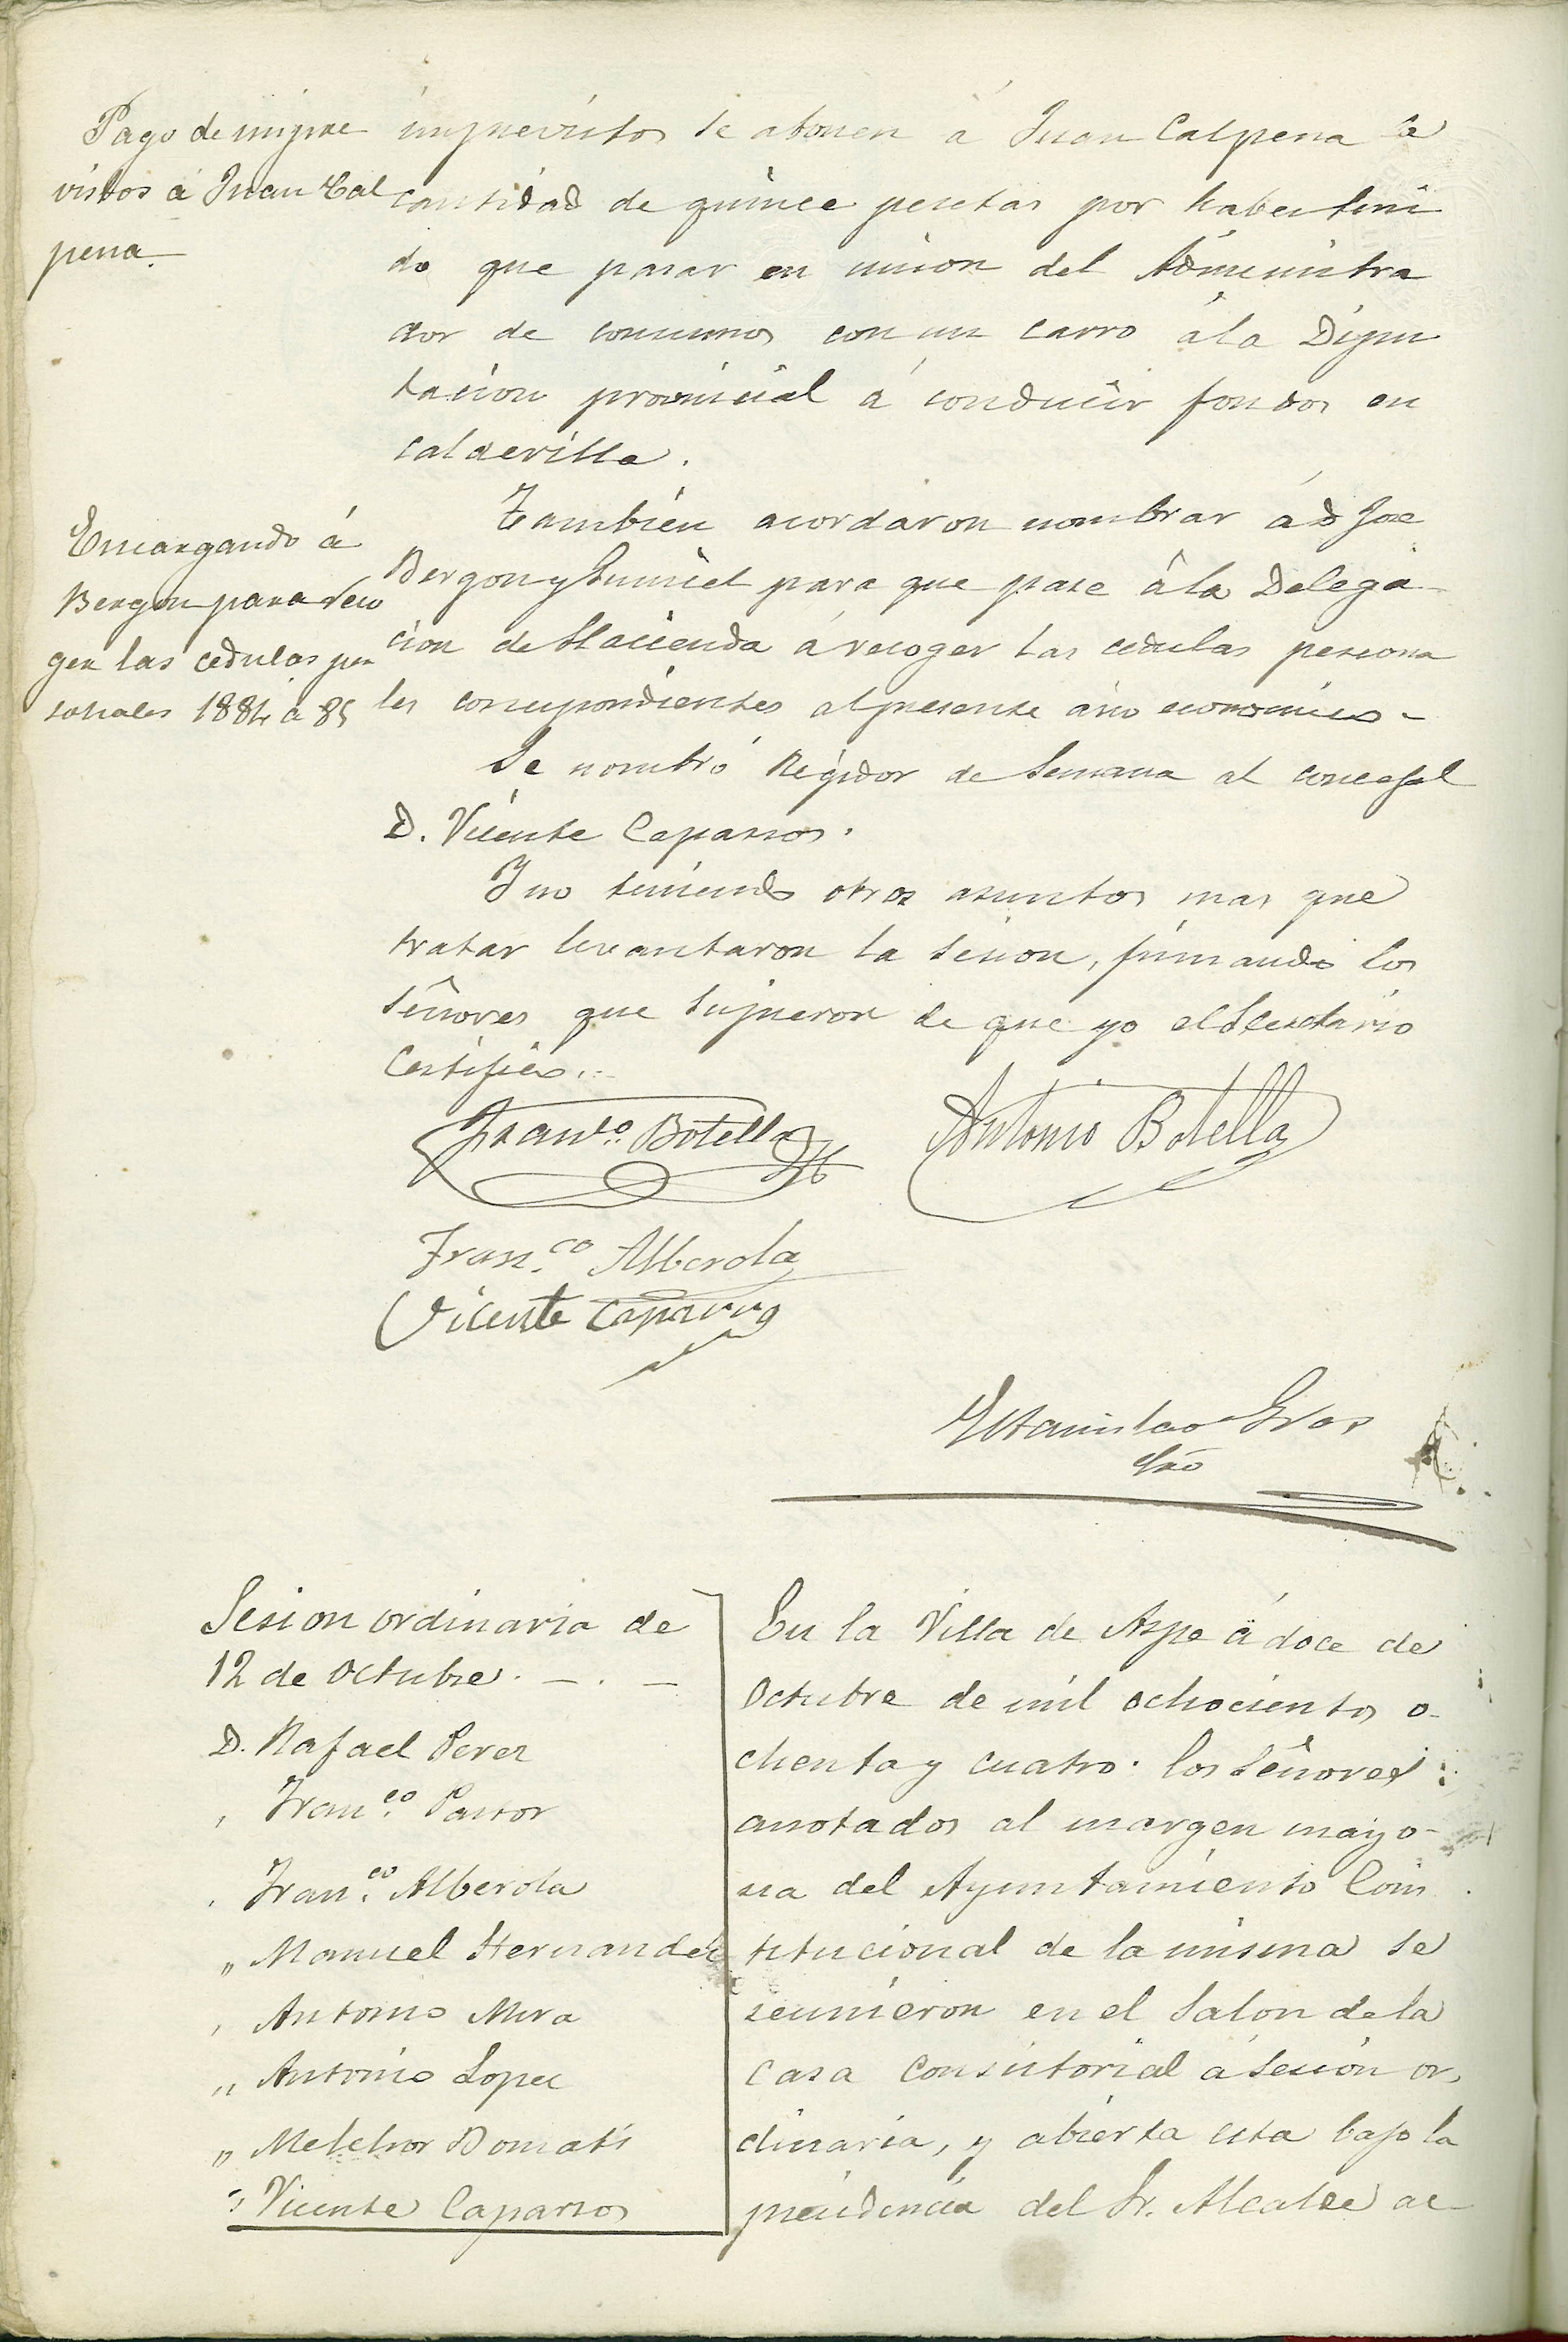 Pago de impre
vistos á Juan Cal
pena.
imprevistos se abonen á Juan Calpena la
cantidad de quince pesetas por haber teni
do que pasar en union del Administra
dor de consumos con un carro á la Dipu
tacion provincial á conducir fondos en
calderilla.
Encargando á
Bergon para reco
ger las cedulas per
sonales 1884 á 85
Tambien acordaron nombrar á D Jose
Bergon y Gumiel para que pase á la Delega
cion de Hacienda á recoger las cedulas persona
les correspondientes al presente año economico.
Se nombró Regidor de Semana al concejal
D. Vicente Caparros.
Y no teniendo otros asuntos mas que
tratar levantaron la sesion, firmando los
Señores que supieron de que yo el Secretario
Certifico.
Franco. Botella
Antonio Botella
Fran.co Alberola
Vicente Caparros
Estanislao Gras
Srio
Sesion ordinaria de
12 de Octubre. - . -
D. Rafael Perez
, Fran.co Pastor
, Fran.co Alberola
,, Manuel Hernandez
, Antonio Mira
,, Antonio Lopez
,, Melchor Domatis
,, Vicente Caparros
En la Villa de Aspe á doce de
Octubre de mil ochocientos o-
chenta y cuatro. los Señores
anotados al margen mayo-
ria del Ayuntamiento Cons
titucional de la misma se
reunieron en el Salon de la
Casa Consistorial á sesión or-
dinaria, y abierta esta bajo la
presidencia del Sr. Alcalde ac-